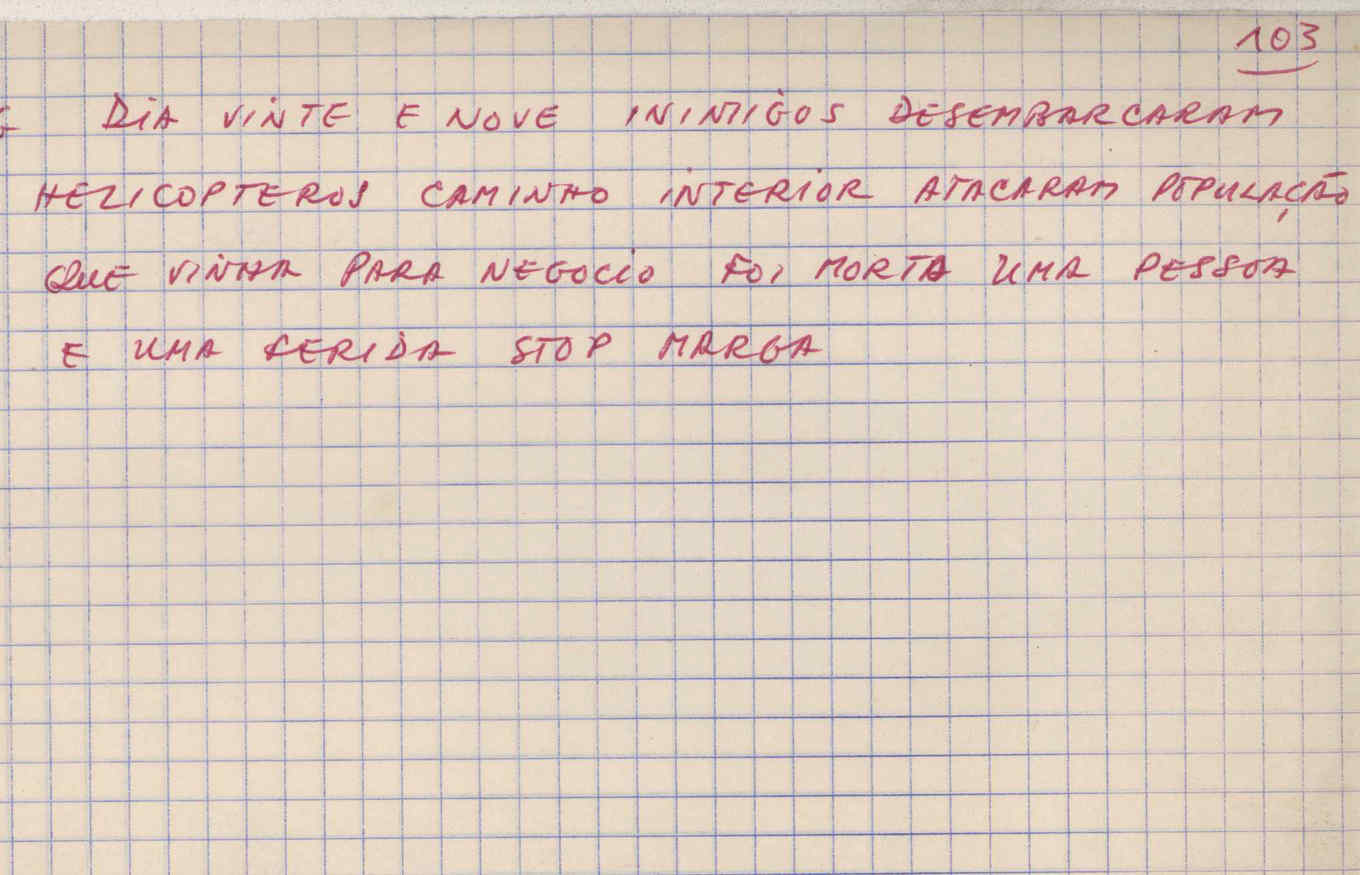 103
DIA VINTE E NOVE INIMIGOS DESEMBARCARAM
HELICOPTEROS CAMINHO INTERIOR ATACARAM POPULAÇÃO
QUE VINHA PARA NEGOCIO FOI MORTA UMA PESSOA
E UMA FERIDA STOP MARGA